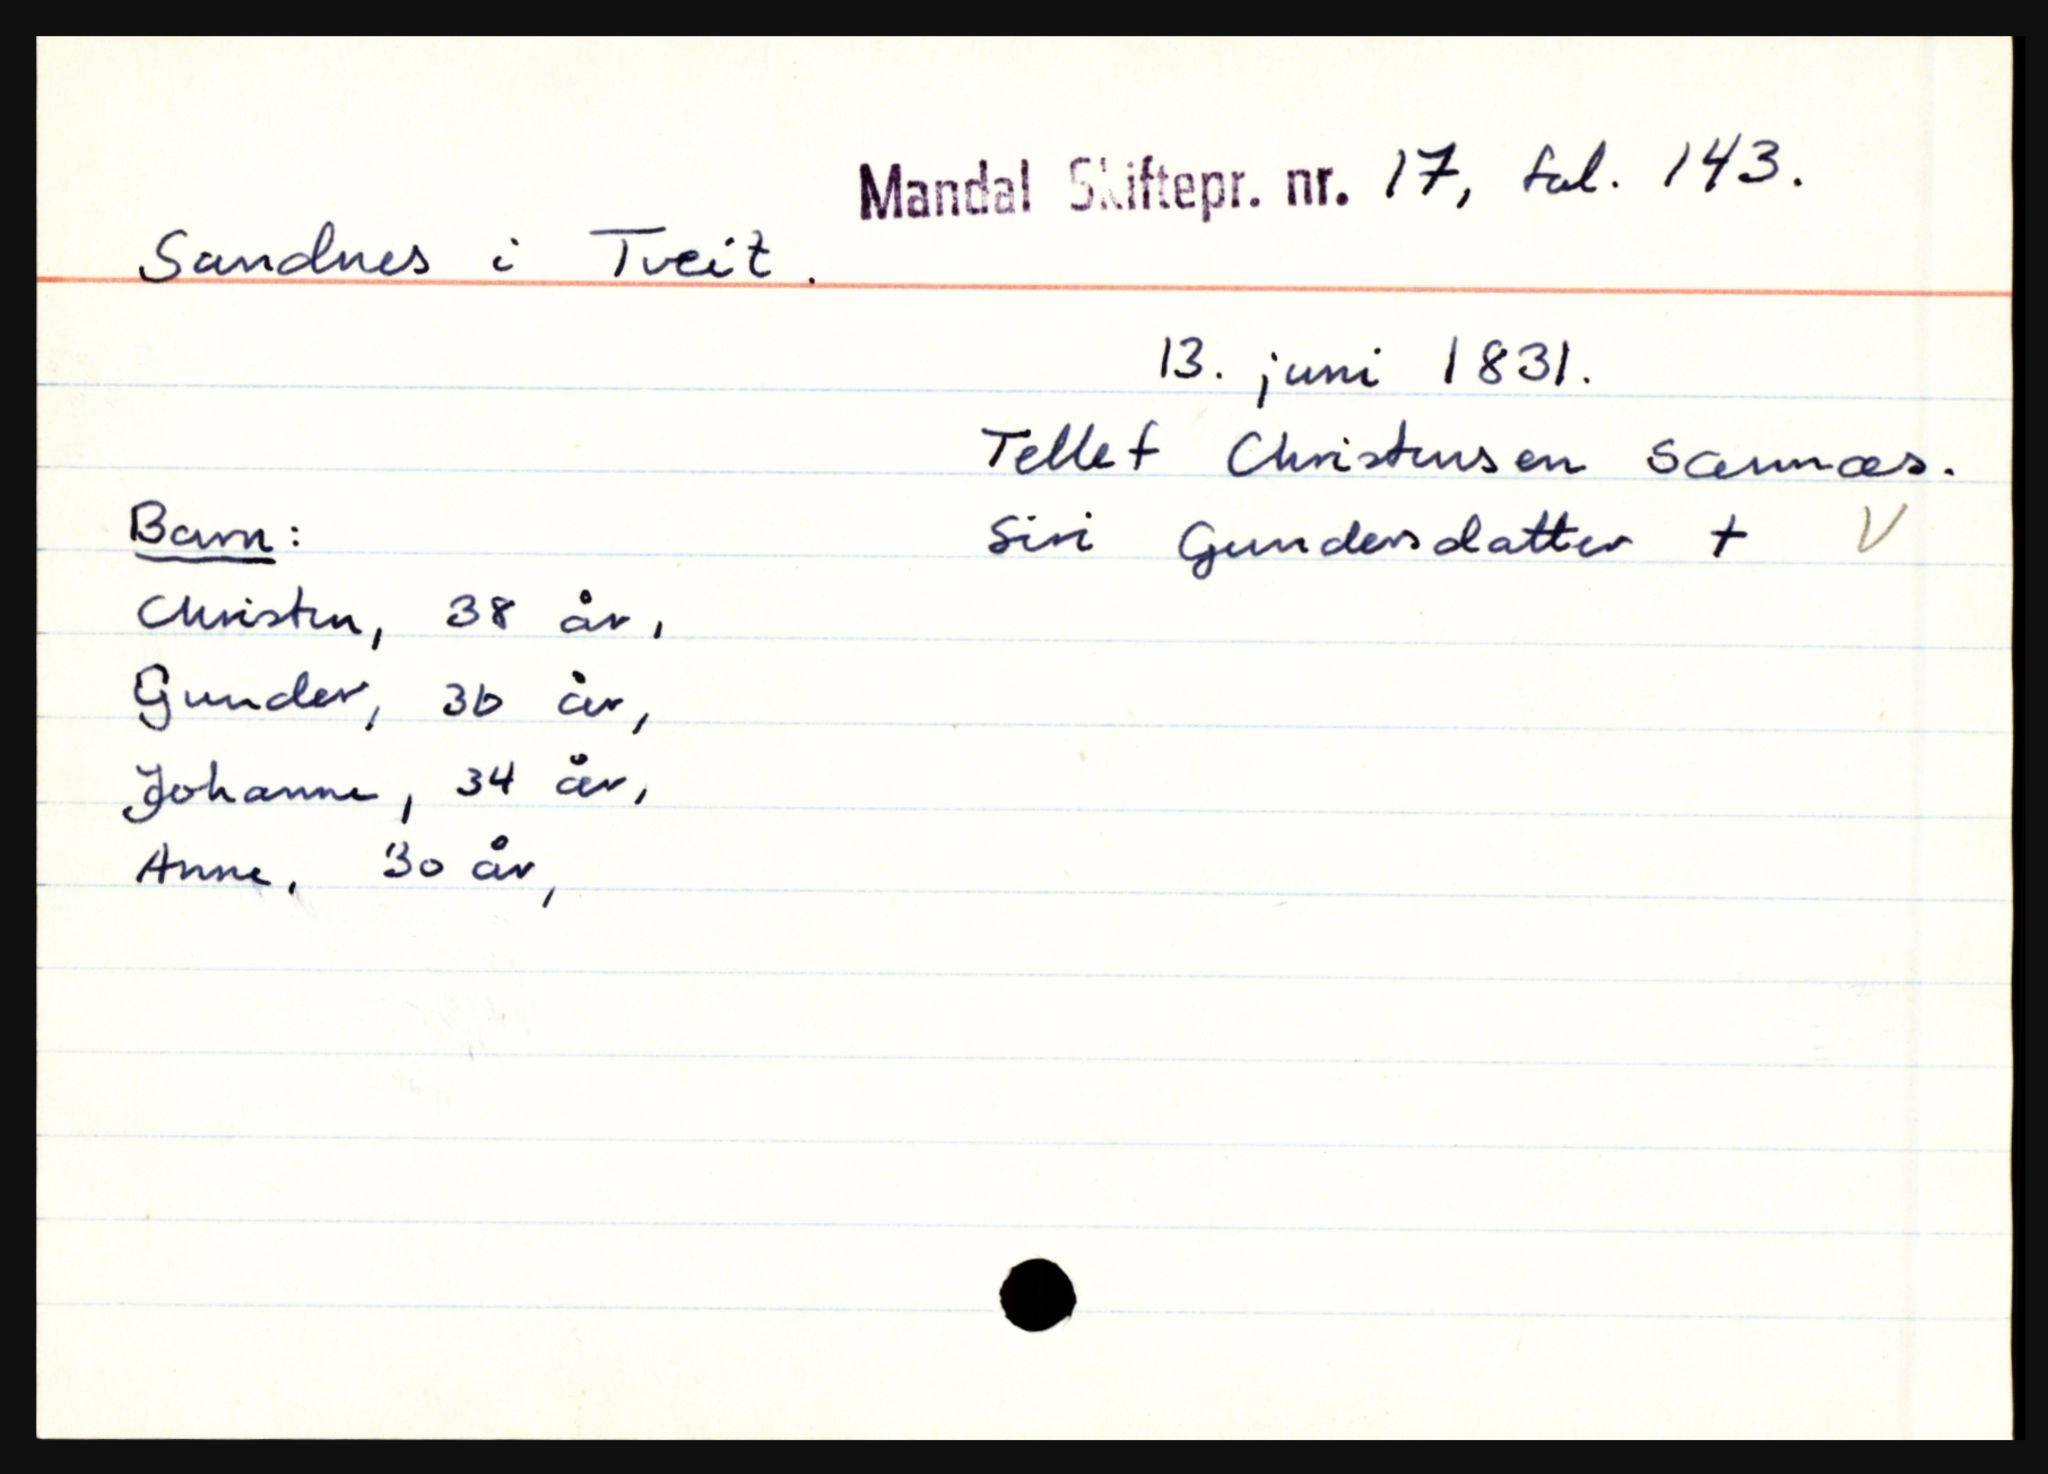 Mandal Skiftepr. nr. 17, fol. 143.
Sandnes i Tveit.
13. juni 1831.
Tellef Christensen Sannæs.
Siri Gundersdatter + V
Barn:
Christen, 38 år,
Gunder, 36 år,
Johanne, 34 år,
Anne, 30 år,